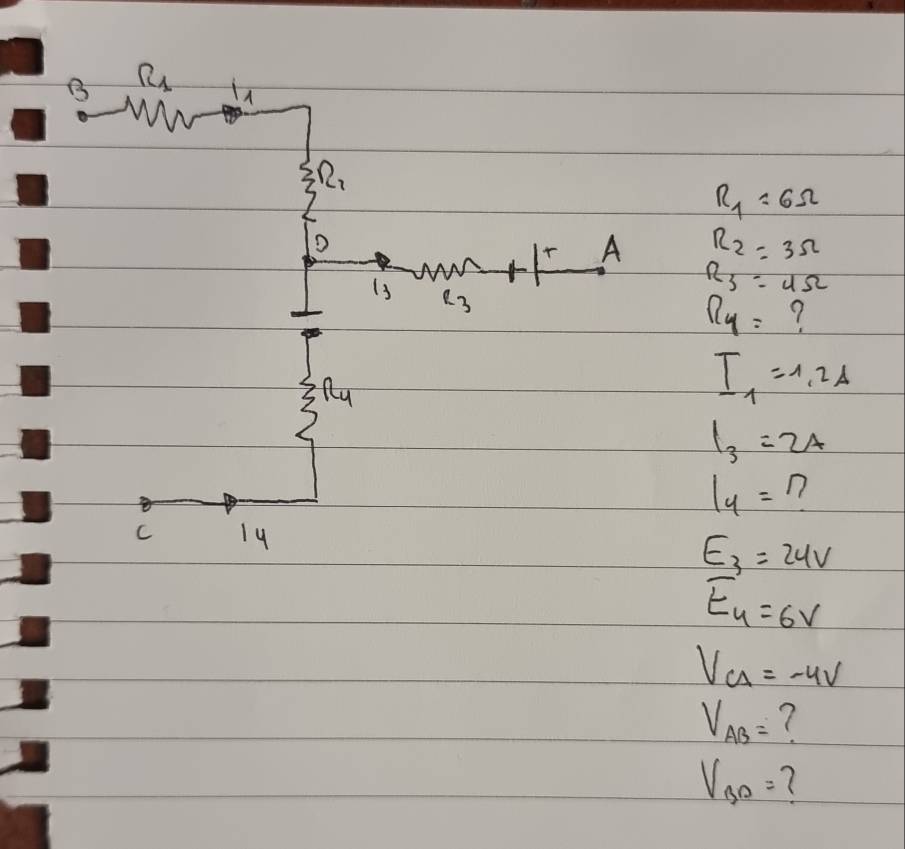 B R1 I1
R2
D
I3 R3 + A
R4
C I4
R1 = 6Ω
R2 = 3Ω
R3 = 4Ω
R4 = ?
I1 = 1,2A
I3 = 2A
I4 = ?
E3 = 24V
E4 = 6V
VCA = -4V
VAB = ?
VBD = ?